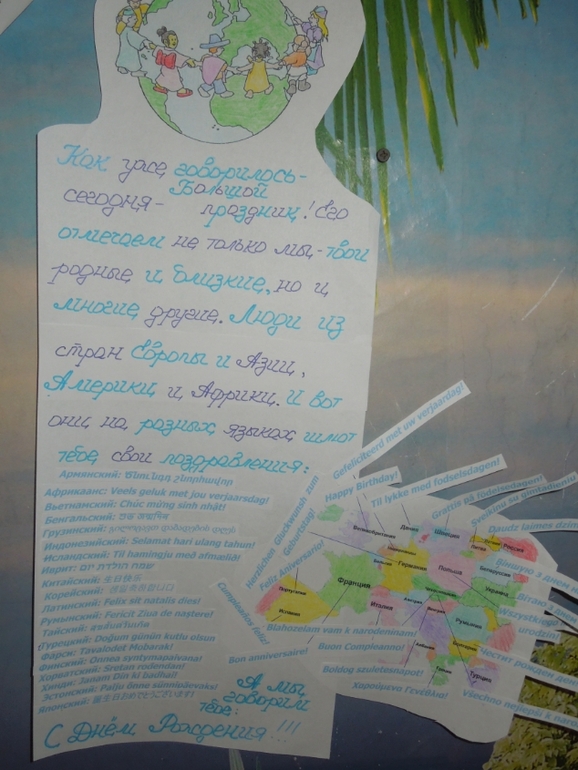 Как уже говорилось-
сегодня- Большой
праздник! Его
отмечаем не только мы,-твои
родные и близкие, но и
многие другие. Люди из
стран Европы и Азии,
Америки и Африки. И вот
они на разных языках шлют
тебе свои поздравления:
Армянский: Ծնունդդ շնորհավոր
Африкаанс: Veels geluk met jou verjaarsdag!
Вьетнамский: Chúc mừng sinh nhật!
Бенгальский: শুভ জন্মদিন
Грузинский:
Индонезийский: Selamat hari ulang tahun!
Исландский: Til hamingju með afmælið!
Иврит:
Китайский: 生日快乐
Корейский:
Латинский: Felix sit natalis dies!
Румынский: Fericit Ziua de naștere!
Тайский: สุขสันต์วันเกิด
Турецкий: Doğum günün kutlu olsun
Фарси: Tavalodet Mobarak!
Финский: Onnea syntymapaivana!
Хорватский: Sretan rođendan!
Хинди: Janam Din ki badhai!
Эстонский: Palju õnne sünnipäevaks!
Японский:
А мы
говорим
тебе:
С Днём Рождения!!!
Gefeliciteerd met uw verjaardag!
Happy Birthday!
Til lykke med fodselsdagen!
Grattis på födelsedagen!
Sveikinu su gimtadieniu
Daudz laimes dzim
Herzlichen Glückwunsch zum
Geburtstag!
Feliz Aniversario!
Cumpleaños feliz!
Bon anniversaire!
Blahozelam vam k narodeninam!
Buon Compleanno!
Boldog szuletesnapot!
Χαρούμενα Γενέθλια!
Віншую з днем
Вітаю з днем
Wszystkiego
urodzin!
Честит рожден ден
Všechno nejlepší k naro
Великобритания
Дания
Швеция
Литва
Россия
Германия
Польша
Белоруссия
Украина
Франция
Португалия
Испания
Италия
Австрия
Румыния
Турция